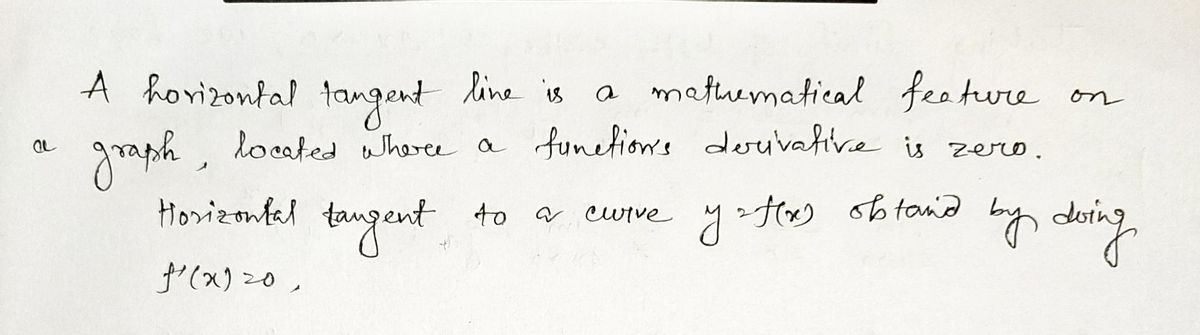 A horizontal tangent line is a mathematical feature on
a graph, located where a function's derivative is zero.
Horizontal tangent to a curve y=f(x) obtained by doing
f'(x)=0,